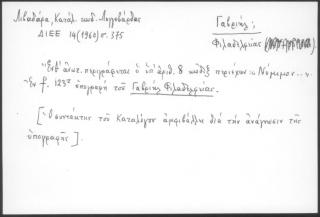 Λιβαδάρα, Καταλ. κωδ. Λυγοβάρδας
ΔΙΕΕ 14 (1960) σ. 375
Γαβριήλ;
Φιλαδελφείας
"Ἐνθ' ἀνωτ. περιγράφεται ὁ ὑπ' ἀριθ. 8 κῶδιξ περιέχων "Νόμιμον..."
"Ἐν f. 123ʳ ὑπογραφὴ τοῦ Γαβριὴλ Φιλαδελφείας.
[Ὁ συντάκτης τοῦ Καταλόγου ἀμφιβάλλει διὰ τὴν ἀνάγνωσιν τῆς
ὑπογραφῆς].